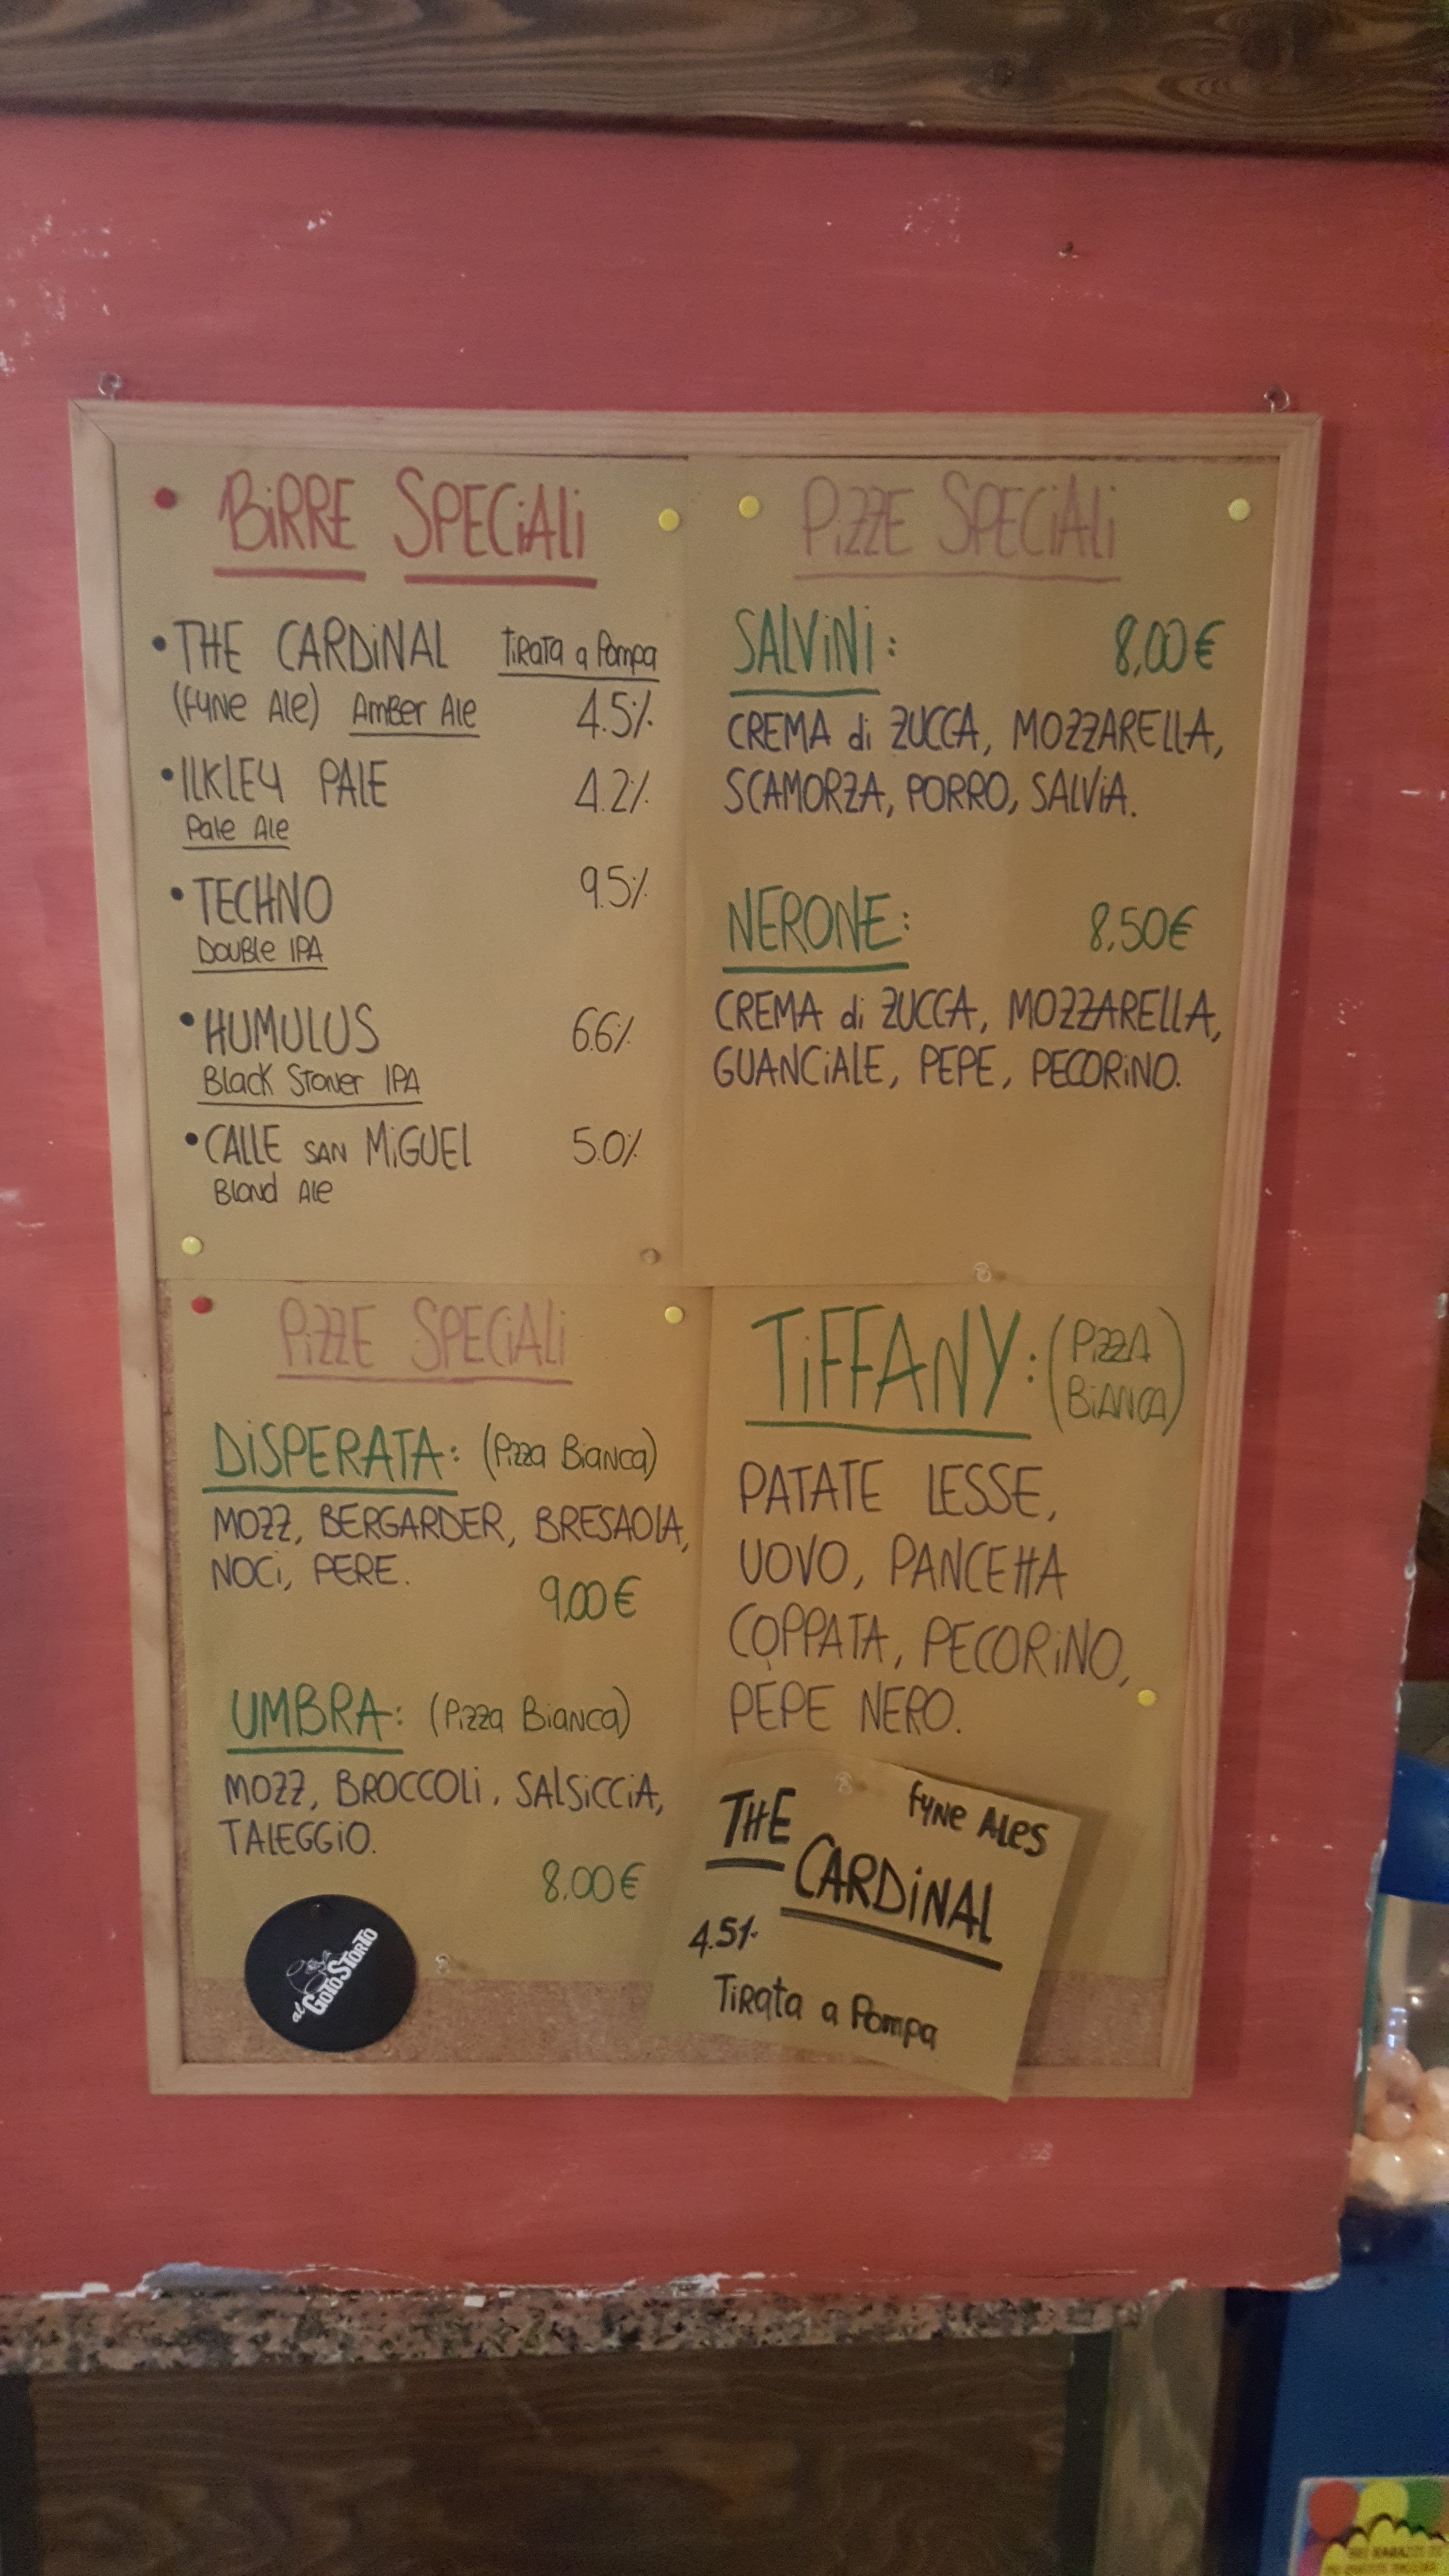 BiRRE SPECiALi
• THE CARDiNAL tiRata a Pompa
(fyNe Ale) AmBer Ale 4.5%
• ILKLEY PALE 4.2%
Pale Ale
• TECHNO 9.5%
DouBle IPA
• HUMULUS 6.6%
Black Stoner IPA
• CALLE SAN MiGUEL 5.0%
Blond Ale
PiZZE SPECiALi
SALViNi: 8,00€
CREMA di ZUCCA, MOZZARELLA,
SCAMORZA, PORRO, SALViA.
NERONE: 8,50€
CREMA di ZUCCA, MOZZARELLA,
GUANCiALE, PEPE, PECORiNO.
PiZZE SPECiALi
DiSPERATA: (Pizza Bianca)
MOZZ, BERGARDER, BRESAOLA,
NOCi, PERE.
9,00€
UMBRA: (Pizza Bianca)
MOZZ, BROCCOLi, SALSiCCiA,
TALEGGiO.
8,00€
al GOTO STORTO
TiFFANY: (PiZZA
BiANCA)
PATATE LESSE,
UOVO, PANCETTA
COPPATA, PECORiNO,
PEPE NERO.
fyNe Ales
THE
CARDiNAL
4.5%
TiRata a Pompa